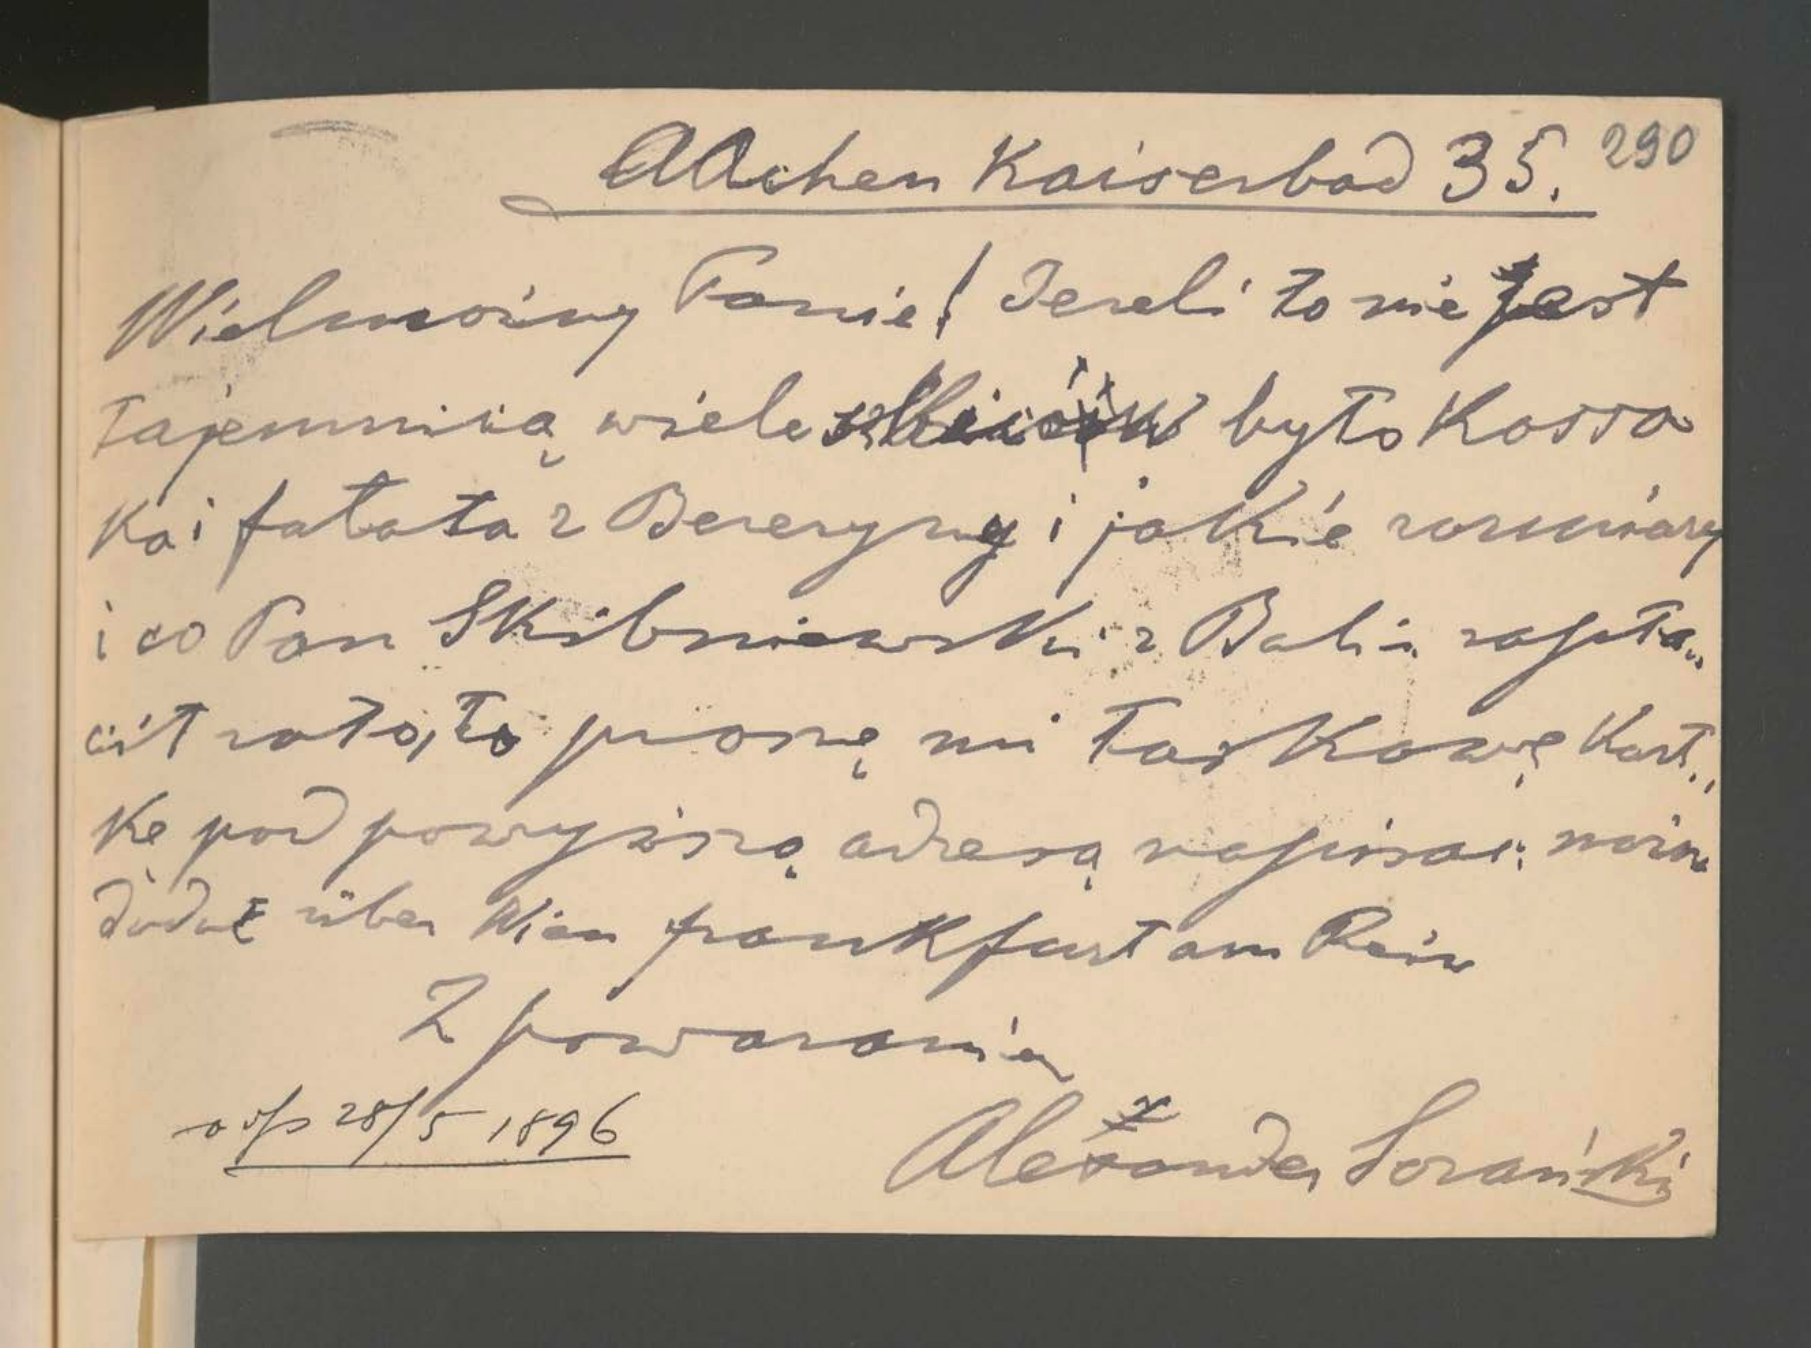 AAchen Kaiserbad 35. 290
Wielmożny Panie! Jezeli to nie jest
tajemnicą wiele szkiców było Kossa
ka i fałata z Berezyny i jakie rozmiary
i co Pan Skibniewski z Balin zapła„
cił zato, to proszę mi łaskawę kart„
kę pod powyższą adresą napisac: można
dodać über Wien frankfurt am Rein
Z powazaniem
odp 28/5 1896
Alexander Sozański